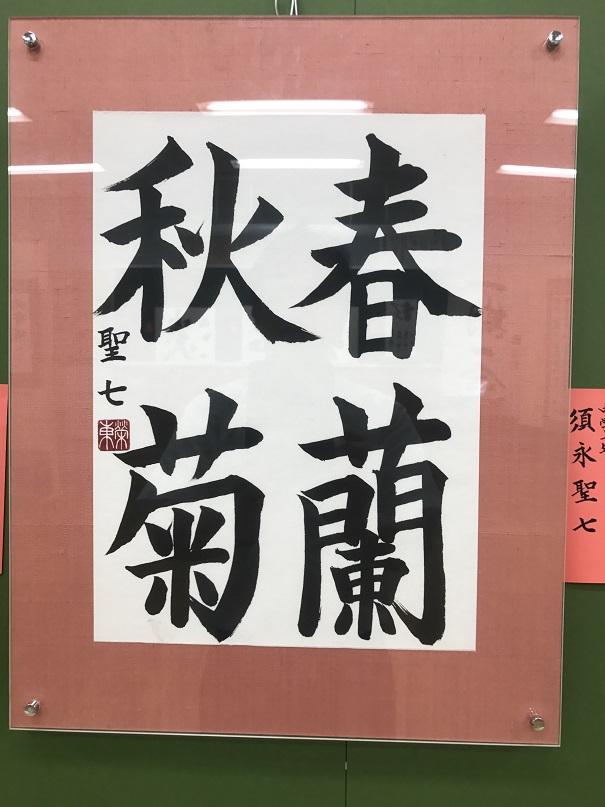 春蘭
秋菊
聖七
須永聖七